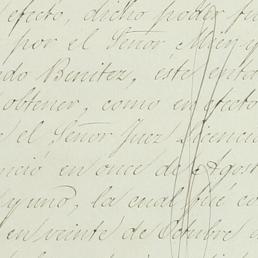 efecto, dicho poder fu
por el Señor Mier y
do Benitez, éste ent
obtener, como en efecto
el Señor Juez Licencia
nció en once de Agost
y uno, la cual fué co
en veinte de Octubre